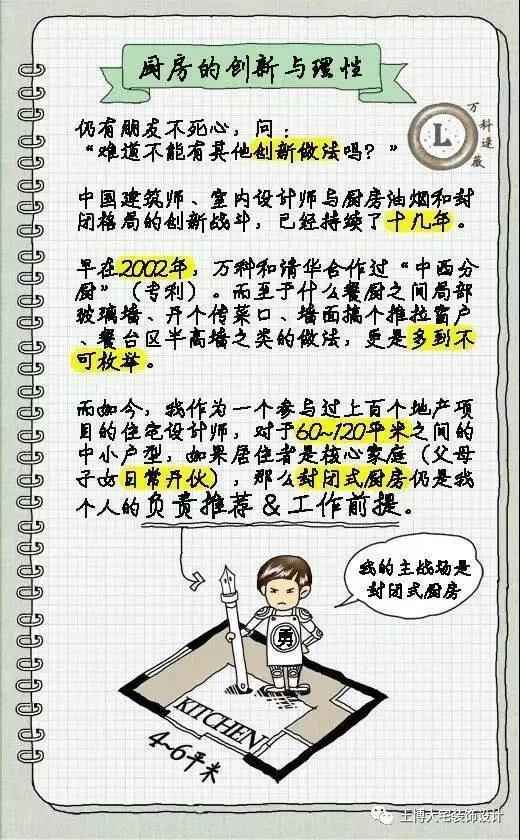 厨房的创新与理性
万科连藏
L
仍有朋友不死心，问：
“难道不能有其他创新做法吗？”
中国建筑师、室内设计师与厨房油烟和封
闭格局的创新战斗，已经持续了十几年。
早在2002年，万科和清华合作过“中西分
厨”（专利）。而至于什么餐厨之间局部
玻璃墙、开个传菜口、墙面搞个推拉窗户
、餐台区半高墙之类的做法，更是多到不
可枚举。
而如今，我作为一个参与过上百个地产项
目的住宅设计师，对于60~120平米之间的
中小户型，如果居住者是核心家庭（父母
子女日常开伙），那么封闭式厨房仍是我
个人的负责推荐&工作前提。
我的主战场是
封闭式厨房
勇
KITCHEN
4~6平米
土博大宅装饰设计